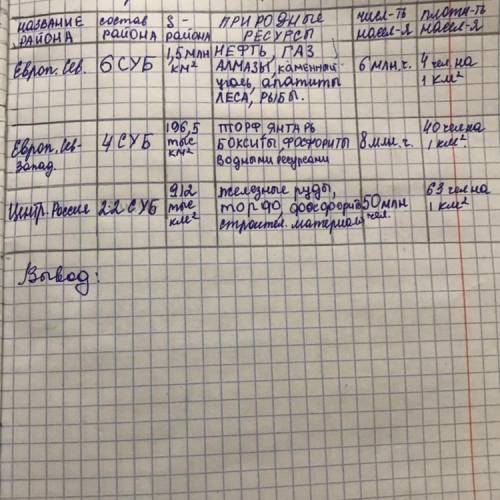 НАЗВАНИЕ РАЙОНА состав РАЙОНА S - РАЙОНА ПРИРОДНЫЕ РЕСУРСЫ числ-ть насел-я плотн-ть насел-я
Европ. Сев. 6 СУБ 1,5 млн км² НЕФТЬ, ГАЗ 6 млн. ч. 4 чел. на 1 км²
АЛМАЗЫ, каменный
уголь, апатиты
ЛЕСА, РЫБЫ.
Европ. Сев-Запад. 4 СУБ 196,5 тыс км² ТОРФ, ЯНТАРЬ 8 млн. ч. 40 чел на 1 км²
БОКСИТЫ, ФОСФОРИТЫ
водными ресурсами
Центр. Россия 22 СУБ 912 тыс км² железные руды, 50 млн чел. 63 чел на 1 км²
торф, фосфорит
строител. материал
Вывод: